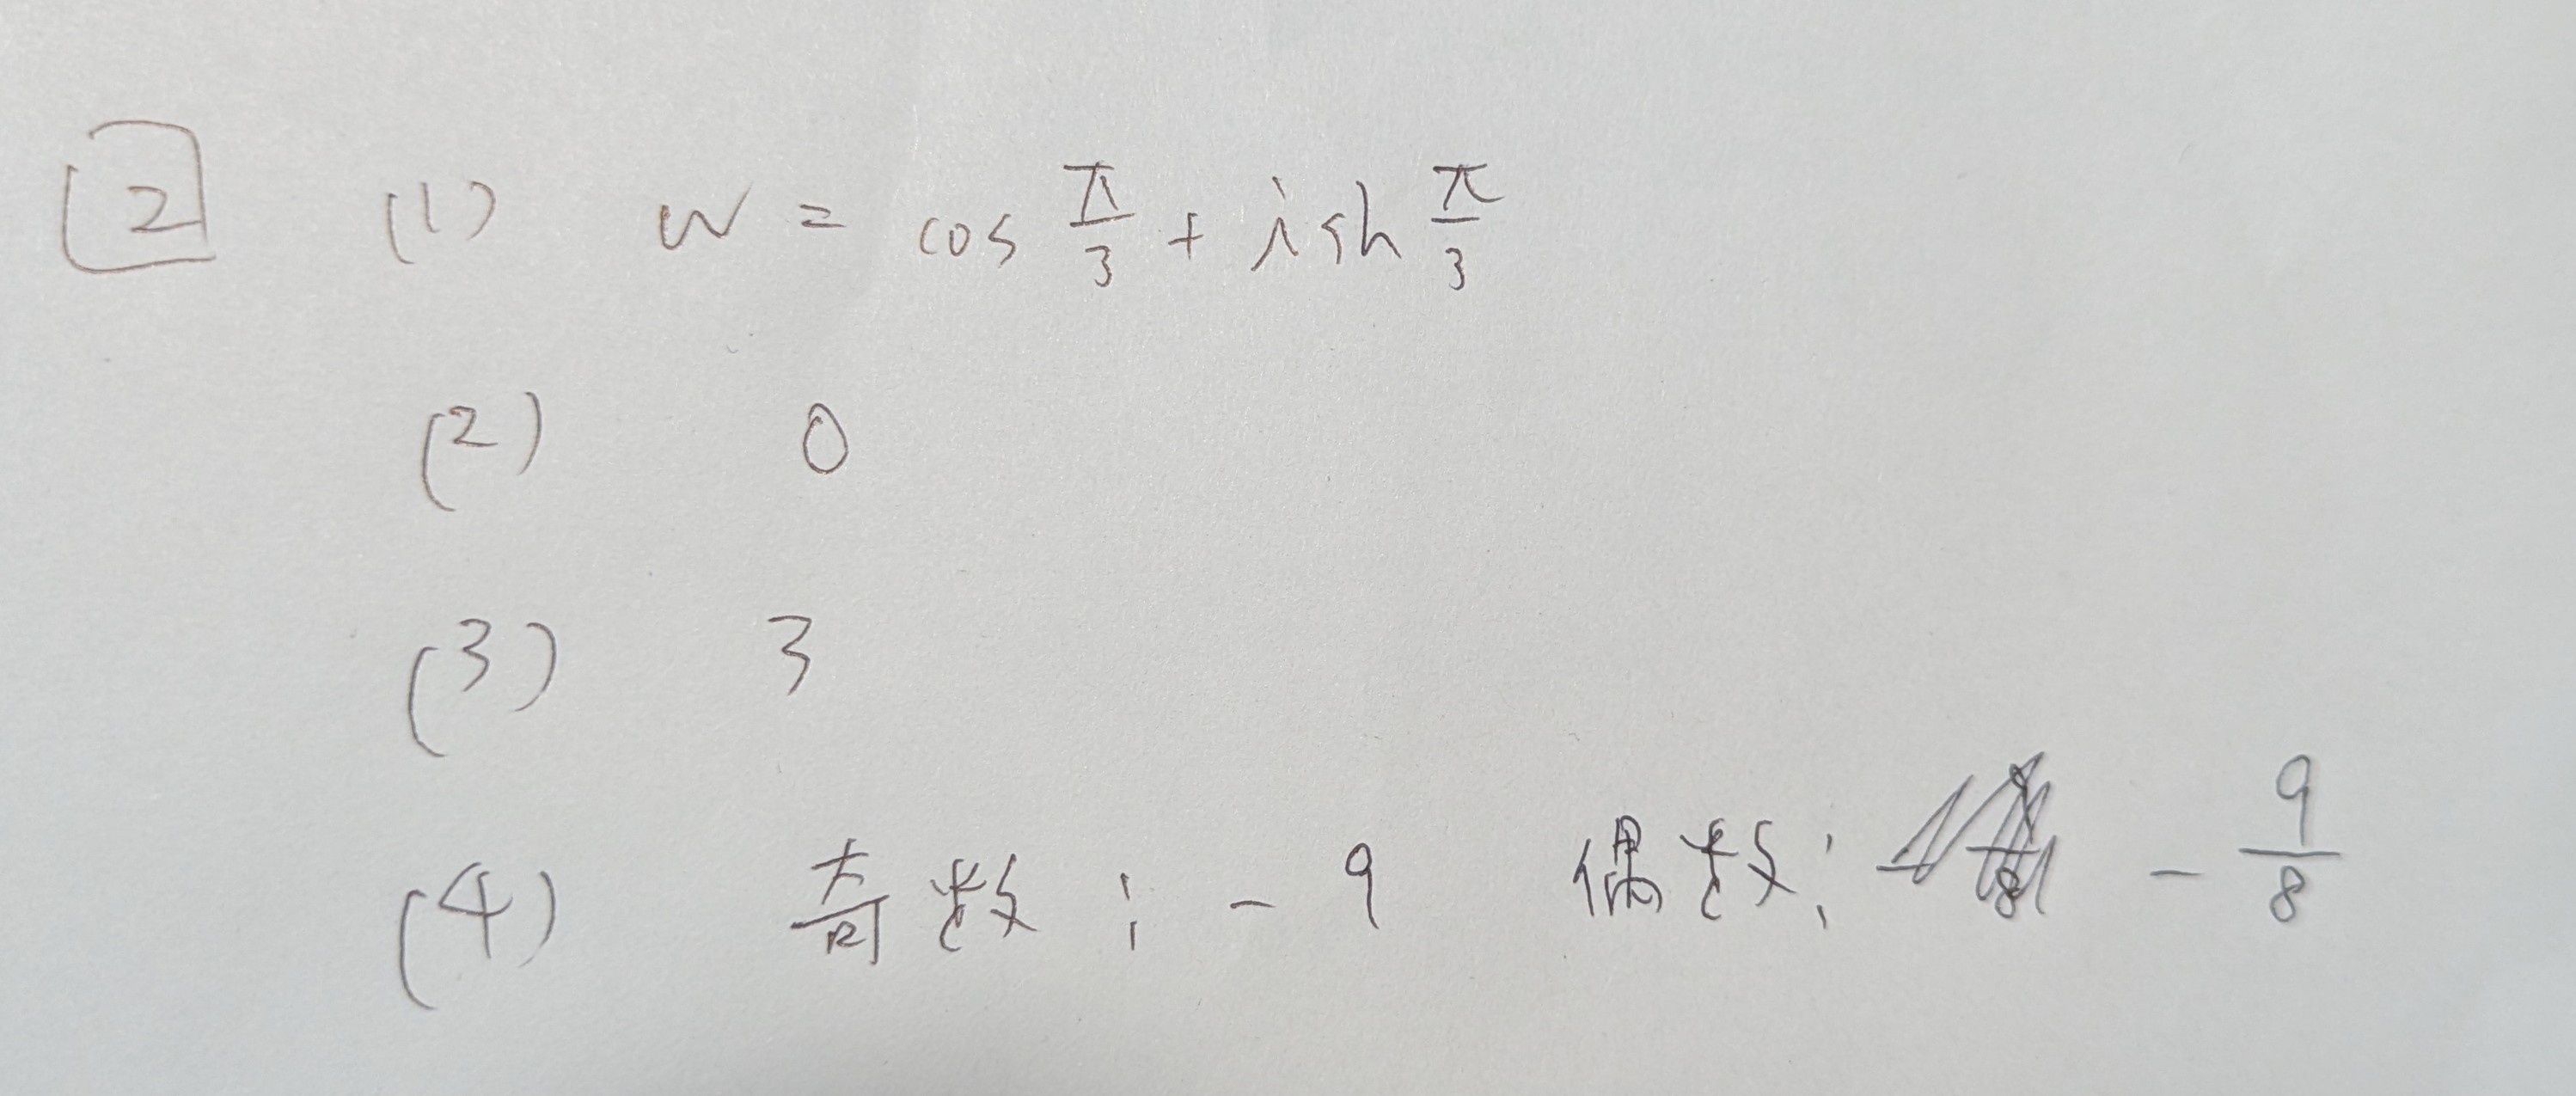 2 (1) w = cos π/3 + i sin π/3
(2) 0
(3) 3
(4) 奇数 : -9 偶数 : - 9/8